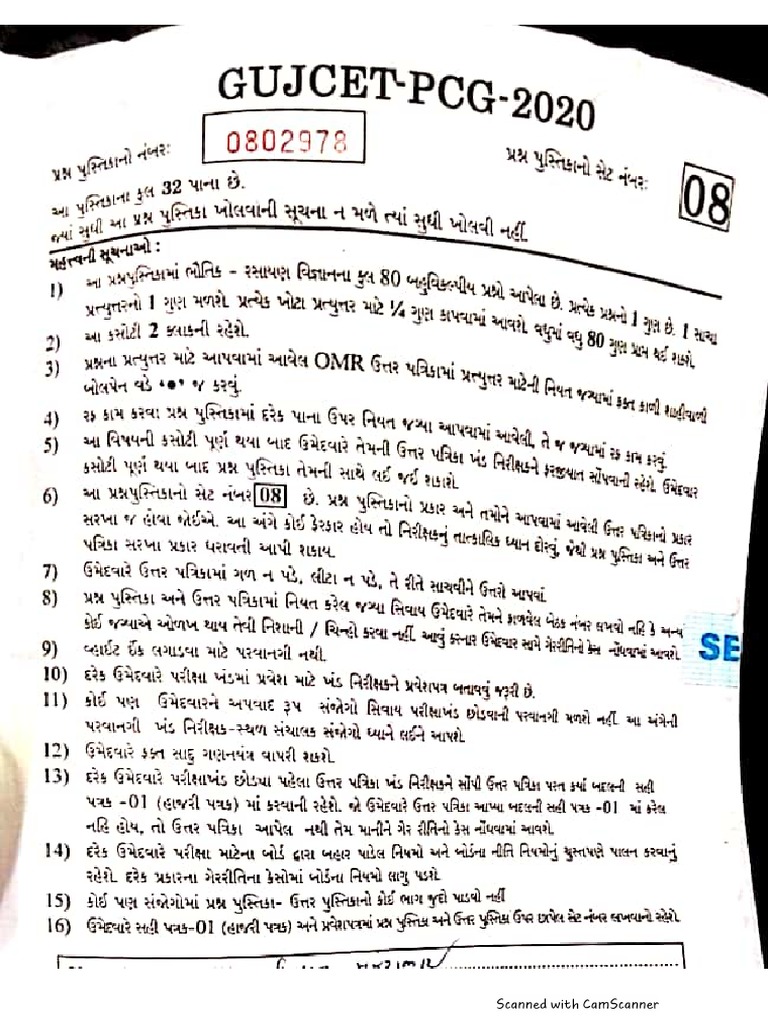 GUJCET-PCG-2020
પ્રશ્ન પુસ્તિકાનો નંબર:
0802978
પ્રશ્ન પુસ્તિકાનો સેટ નંબર:
08
આ પુસ્તિકાના કુલ 32 પાના છે.
જ્યાં સુધી આ પ્રશ્ન પુસ્તિકા ખોલવાની સૂચના ન મળે ત્યાં સુધી ખોલવી નહીં.
મહત્વની સૂચનાઓ :
1) આ પ્રશ્નપુસ્તિકામાં ભૌતિક - રસાયણ વિજ્ઞાનના કુલ 80 બહુવિકલ્પીય પ્રશ્નો આપેલા છે. પ્રત્યેક પ્રશ્નનો 1 ગુણ છે. 1 સાચા
પ્રત્યુત્તરનો 1 ગુણ મળશે. પ્રત્યેક ખોટા પ્રત્યુત્તર માટે ¼ ગુણ કાપવામાં આવશે. વધુમાં વધુ 80 ગુણ પ્રાપ્ત થઈ શકશે.
2) આ કસોટી 2 કલાકની રહેશે.
3) પ્રશ્નના પ્રત્યુત્તર માટે આપવામાં આવેલ OMR ઉત્તર પત્રિકામાં પ્રત્યુત્તર માટેની નિયત જગ્યામાં ફક્ત કાળી શાહીવાળી
બોલપેન વડે ‘●’ જ કરવું.
4) રફ કામ કરવા પ્રશ્ન પુસ્તિકામાં દરેક પાના ઉપર નિયત જગ્યા આપવામાં આવેલી, તે જ જગ્યામાં રફ કામ કરવું.
5) આ વિષયની કસોટી પૂર્ણ થયા બાદ ઉમેદવારે તેમની ઉત્તર પત્રિકા ખંડ નિરીક્ષકને ફરજીયાત સોંપવાની રહેશે. ઉમેદવાર
કસોટી પૂર્ણ થયા બાદ પ્રશ્ન પુસ્તિકા તેમની સાથે લઈ જઈ શકાશે.
6) આ પ્રશ્નપુસ્તિકાનો સેટ નંબર 08 છે. પ્રશ્ન પુસ્તિકાનો પ્રકાર અને તમોને આપવામાં આવેલી ઉત્તર પત્રિકાનો પ્રકાર
સરખા જ હોવા જોઈએ. આ અંગે કોઈ ફેરકાર હોય તો નિરીક્ષકનું તાત્કાલિક ધ્યાન દોરવું, જેથી પ્રશ્ન પુસ્તિકા અને ઉત્તર
પત્રિકા સરખા પ્રકાર ધરાવતી આપી શકાય.
7) ઉમેદવારે ઉત્તર પત્રિકામાં ગળ ન પડે, લીટા ન પડે, તે રીતે સાચવીને ઉત્તરો આપવાં.
8) પ્રશ્ન પુસ્તિકા અને ઉત્તર પત્રિકામાં નિયત કરેલ જગ્યા સિવાય ઉમેદવારે તેમને ફાળવેલ બેઠક નંબર લખવો નહિ કે અન્ય
કોઈ જગ્યાએ ઓળખ થાય તેવી નિશાની / ચિન્હો કરવા નહીં. આવું કરનાર ઉમેદવાર સામે ગેરરીતિનો કેસ નોંધવામાં આવશે.
SE
9) વ્હાઈટ ઈંક લગાડવા માટે પરવાનગી નથી.
10) દરેક ઉમેદવારે પરીક્ષા ખંડમાં પ્રવેશ માટે ખંડ નિરીક્ષકને પ્રવેશપત્ર બતાવવું જરૂરી છે.
11) કોઈ પણ ઉમેદવારને અપવાદ રૂપ સંજોગો સિવાય પરીક્ષાખંડ છોડવાની પરવાનગી મળશે નહીં. આ અંગેની
પરવાનગી ખંડ નિરીક્ષક-સ્થળ સંચાલક સંજોગો ધ્યાને લઈને આપશે.
12) ઉમેદવારે ફક્ત સાદુ ગણનયંત્ર વાપરી શકશે.
13) દરેક ઉમેદવારે પરીક્ષાખંડ છોડયા પહેલા ઉત્તર પત્રિકા ખંડ નિરીક્ષકને સોંપી ઉત્તર પત્રિકા પરત કર્યા બદલની સહી
પત્રક -01 (હાજરી પત્રક) માં કરવાની રહેશે. જો ઉમેદવારે ઉત્તર પત્રિકા આપ્યા બદલની સહી પત્રક -01 માં કરેલ
નહિ હોય, તો ઉત્તર પત્રિકા આપેલ નથી તેમ માનીને ગેર રીતિનો કેસ નોંધવામાં આવશે.
14) દરેક ઉમેદવારે પરીક્ષા માટેના બોર્ડ દ્વારા બહાર પાડેલ નિયમો અને બોર્ડના નીતિ નિયમોનું ચુસ્તપણે પાલન કરવાનું
રહેશે. દરેક પ્રકારના ગેરરીતિના કેસોમાં બોર્ડના નિયમો લાગુ પડશે.
15) કોઈ પણ સંજોગોમાં પ્રશ્ન પુસ્તિકા- ઉત્તર પુસ્તિકાનો કોઈ ભાગ જુદો પાડવો નહીં
16) ઉમેદવારે સહી પત્રક-01 (હાજરી પત્રક) અને પ્રવેશપત્રમાં પ્રશ્ન પુસ્તિકા અને ઉત્તર પુસ્તિકા ઉપર છાપેલ સેટ નંબર લખવાનો રહેશે.
Scanned with CamScanner